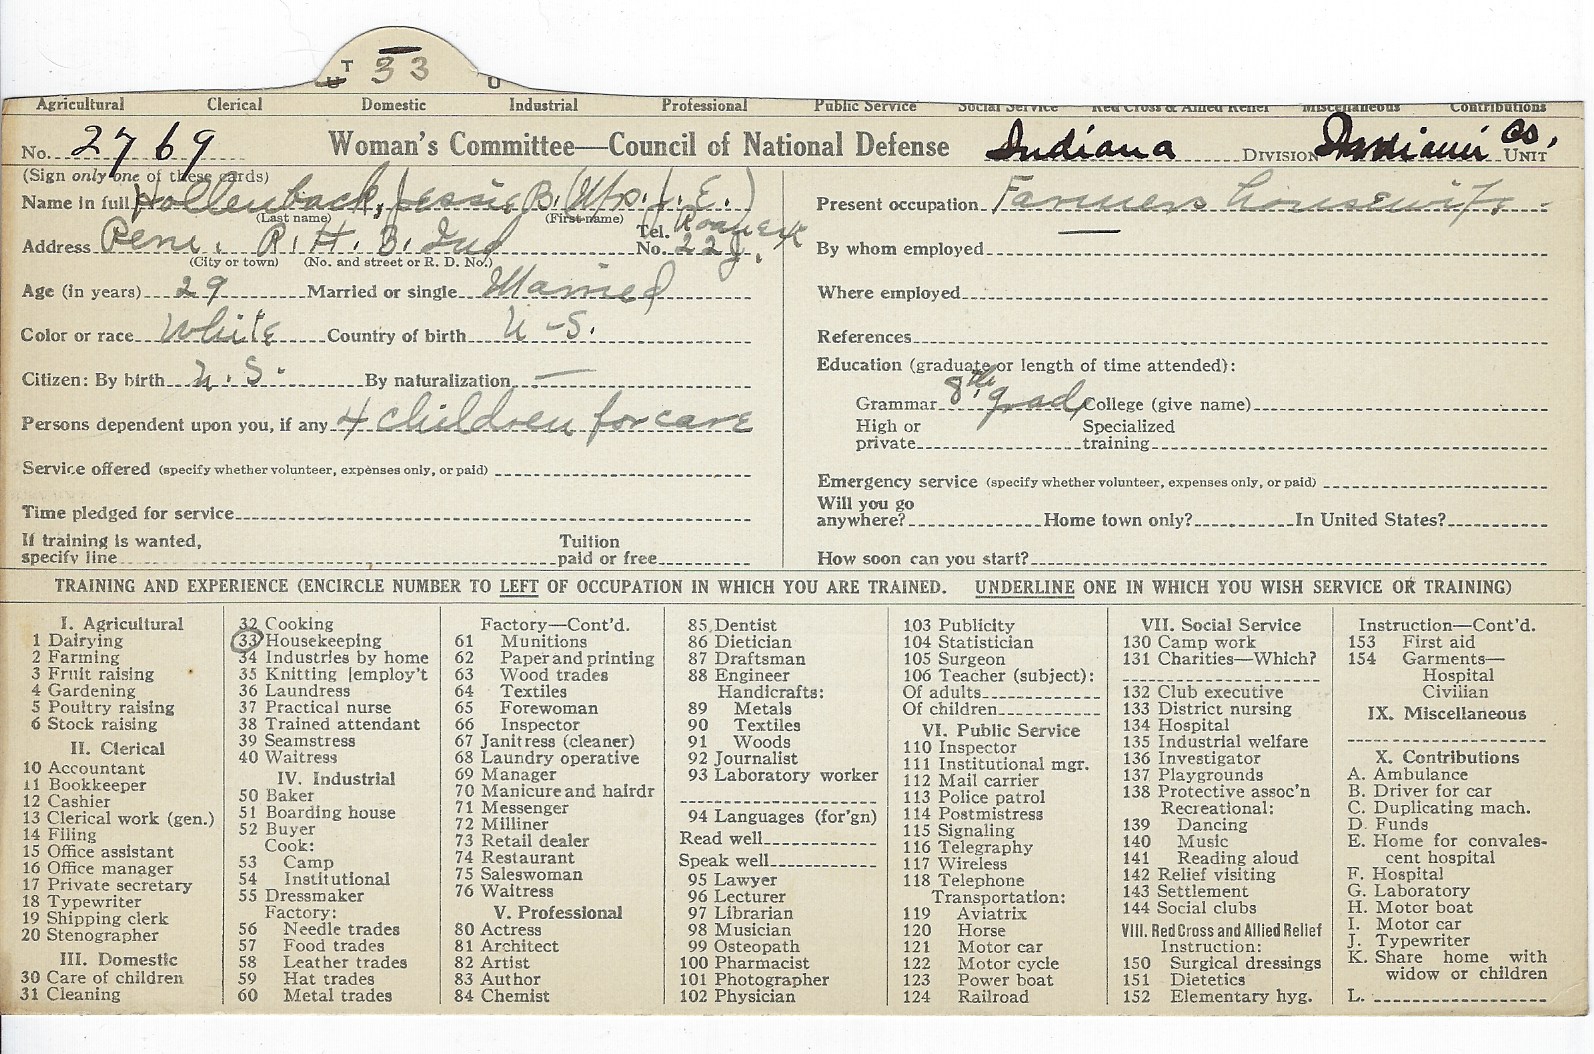 T 33
U U
Agricultural Clerical Domestic Industrial Professional Public Service Social Service Red Cross & Allied Relief Miscellaneous Contributions
No. 2769 Woman's Committee—Council of National Defense Indiana DIVISION Miami Co. UNIT
(Sign only one of these cards)
Name in full Hollenback, Jessie B. (Mrs. J. E.)
(Last name) (First name)
Address Peru. R. #. 3. Ind Tel. No. 22J.
(City or town) (No. and street or R. D. No.)
Age (in years) 29 Married or single Married
Color or race White Country of birth U-S.
Citizen: By birth U.S. By naturalization —
Persons dependent upon you, if any 4 children for care
Service offered (specify whether volunteer, expenses only, or paid)
Time pledged for service
If training is wanted, specify line Tuition paid or free
Present occupation Farmers housewife
By whom employed
Where employed
References
Education (graduate or length of time attended):
Grammar 8th grade College (give name)
High or private Specialized training
Emergency service (specify whether volunteer, expenses only, or paid)
Will you go anywhere? Home town only? In United States?
How soon can you start?
TRAINING AND EXPERIENCE (ENCIRCLE NUMBER TO LEFT OF OCCUPATION IN WHICH YOU ARE TRAINED. UNDERLINE ONE IN WHICH YOU WISH SERVICE OR TRAINING)
I. Agricultural
1 Dairying
2 Farming
3 Fruit raising
4 Gardening
5 Poultry raising
6 Stock raising
II. Clerical
10 Accountant
11 Bookkeeper
12 Cashier
13 Clerical work (gen.)
14 Filing
15 Office assistant
16 Office manager
17 Private secretary
18 Typewriter
19 Shipping clerk
20 Stenographer
III. Domestic
30 Care of children
31 Cleaning
32 Cooking
33 Housekeeping
34 Industries by home
35 Knitting [employ't
36 Laundress
37 Practical nurse
38 Trained attendant
39 Seamstress
40 Waitress
IV. Industrial
50 Baker
51 Boarding house
52 Buyer
Cook:
53 Camp
54 Institutional
55 Dressmaker
Factory:
56 Needle trades
57 Food trades
58 Leather trades
59 Hat trades
60 Metal trades
Factory—Cont'd.
61 Munitions
62 Paper and printing
63 Wood trades
64 Textiles
65 Forewoman
66 Inspector
67 Janitress (cleaner)
68 Laundry operative
69 Manager
70 Manicure and hairdr
71 Messenger
72 Milliner
73 Retail dealer
74 Restaurant
75 Saleswoman
76 Waitress
V. Professional
80 Actress
81 Architect
82 Artist
83 Author
84 Chemist
85 Dentist
86 Dietician
87 Draftsman
88 Engineer
Handicrafts:
89 Metals
90 Textiles
91 Woods
92 Journalist
93 Laboratory worker
94 Languages (for'gn)
Read well
Speak well
95 Lawyer
96 Lecturer
97 Librarian
98 Musician
99 Osteopath
100 Pharmacist
101 Photographer
102 Physician
103 Publicity
104 Statistician
105 Surgeon
106 Teacher (subject):
Of adults
Of children
VI. Public Service
110 Inspector
111 Institutional mgr.
112 Mail carrier
113 Police patrol
114 Postmistress
115 Signaling
116 Telegraphy
117 Wireless
118 Telephone
Transportation:
119 Aviatrix
120 Horse
121 Motor car
122 Motor cycle
123 Power boat
124 Railroad
VII. Social Service
130 Camp work
131 Charities—Which?
132 Club executive
133 District nursing
134 Hospital
135 Industrial welfare
136 Investigator
137 Playgrounds
138 Protective assoc'n
Recreational:
139 Dancing
140 Music
141 Reading aloud
142 Relief visiting
143 Settlement
144 Social clubs
VIII. Red Cross and Allied Relief
Instruction:
150 Surgical dressings
151 Dietetics
152 Elementary hyg.
Instruction—Cont'd.
153 First aid
154 Garments—
Hospital
Civilian
IX. Miscellaneous
X. Contributions
A. Ambulance
B. Driver for car
C. Duplicating mach.
D. Funds
E. Home for convales-
cent hospital
F. Hospital
G. Laboratory
H. Motor boat
I. Motor car
J. Typewriter
K. Share home with
widow or children
L.